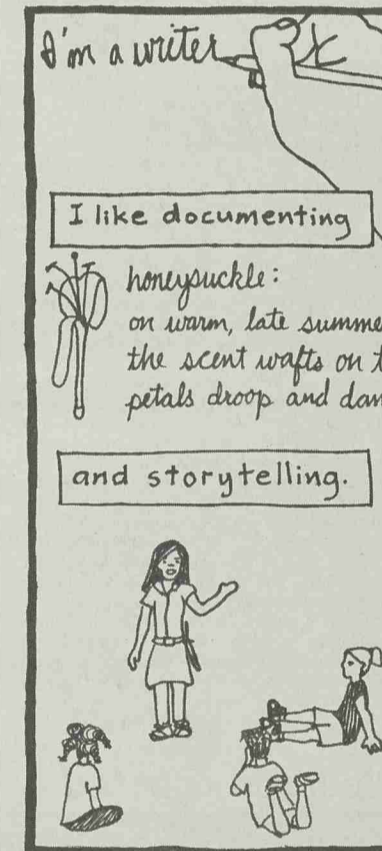 I'm a writer
I like documenting
honeysuckle:
on warm, late summe
the scent wafts on t
petals droop and dan
and storytelling.